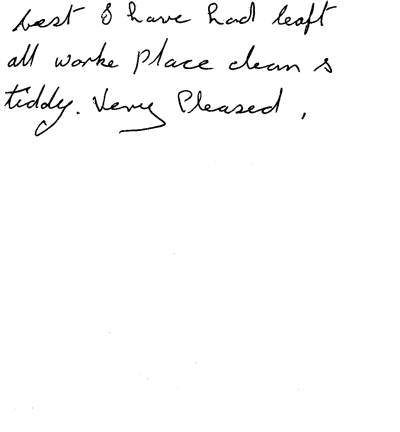 best I have had leaft
all worke place clean &
tiddy. Very Pleased,